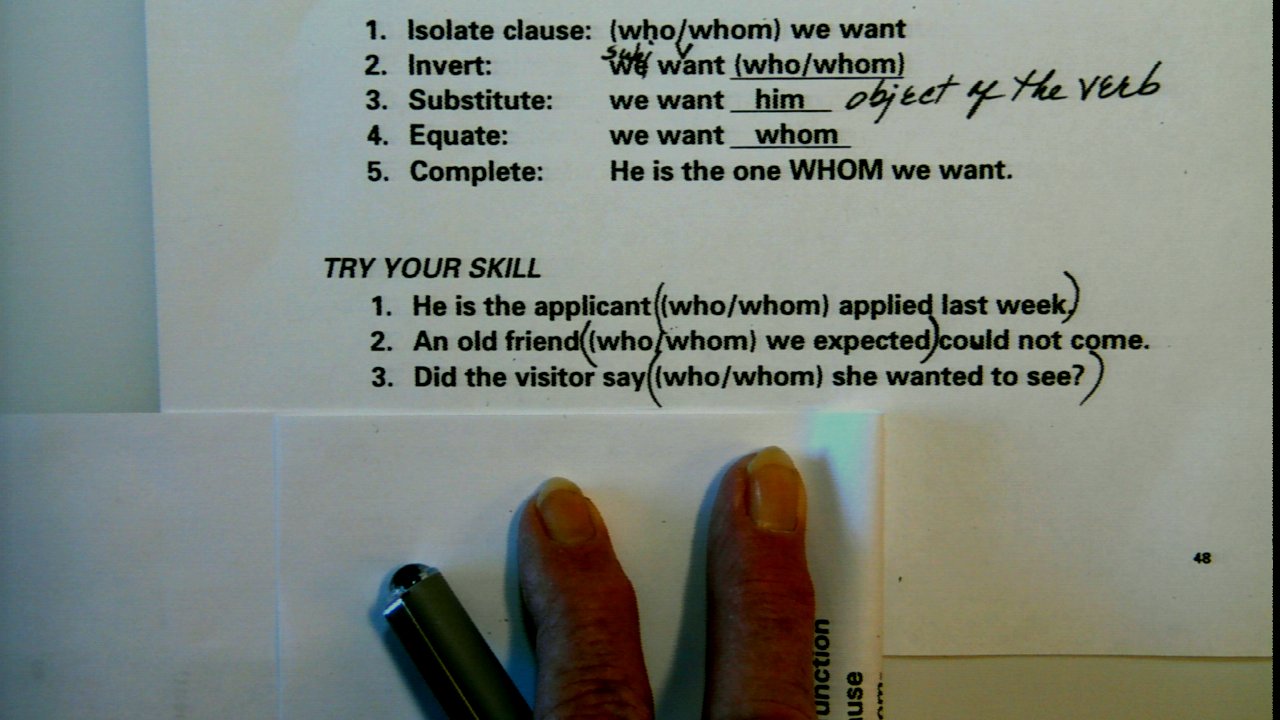 1. Isolate clause: (who/whom) we want
subj v
2. Invert: we want (who/whom)
3. Substitute: we want him object of the verb
4. Equate: we want whom
5. Complete: He is the one WHOM we want.
TRY YOUR SKILL
1. He is the applicant((who/whom) applied last week.)
2. An old friend((who/whom) we expected)could not come.
3. Did the visitor say((who/whom) she wanted to see?)
48